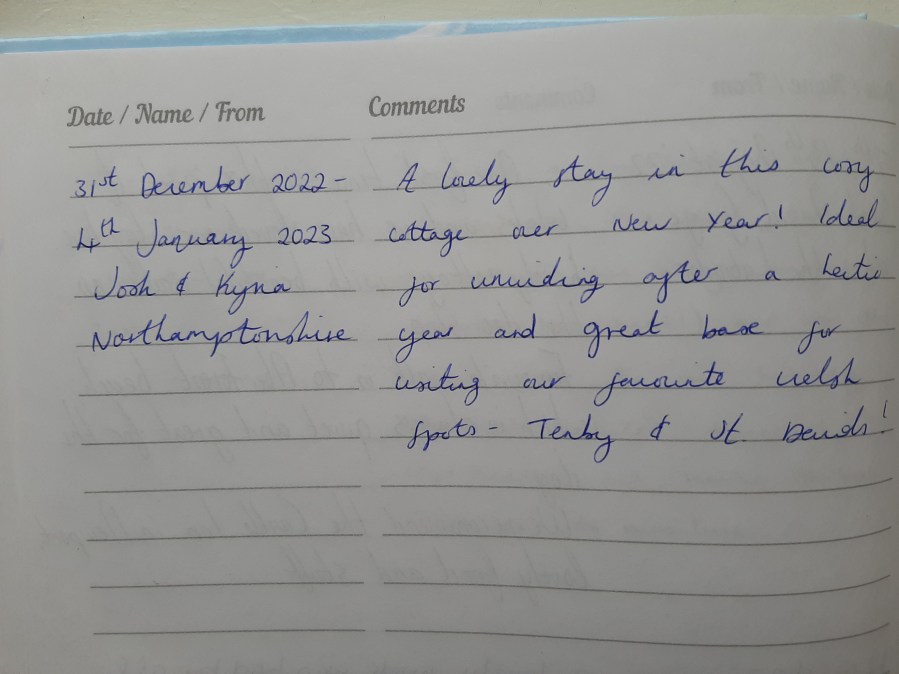 Date / Name / From
Comments
31st December 2022 -
4th January 2023
Josh & Kyna
Northamptonshire
A lovely stay in this cosy
cottage over New Year! Ideal
for unwinding after a hectic
year and great base for
visiting our favourite welsh
spots - Tenby & St. Davids!